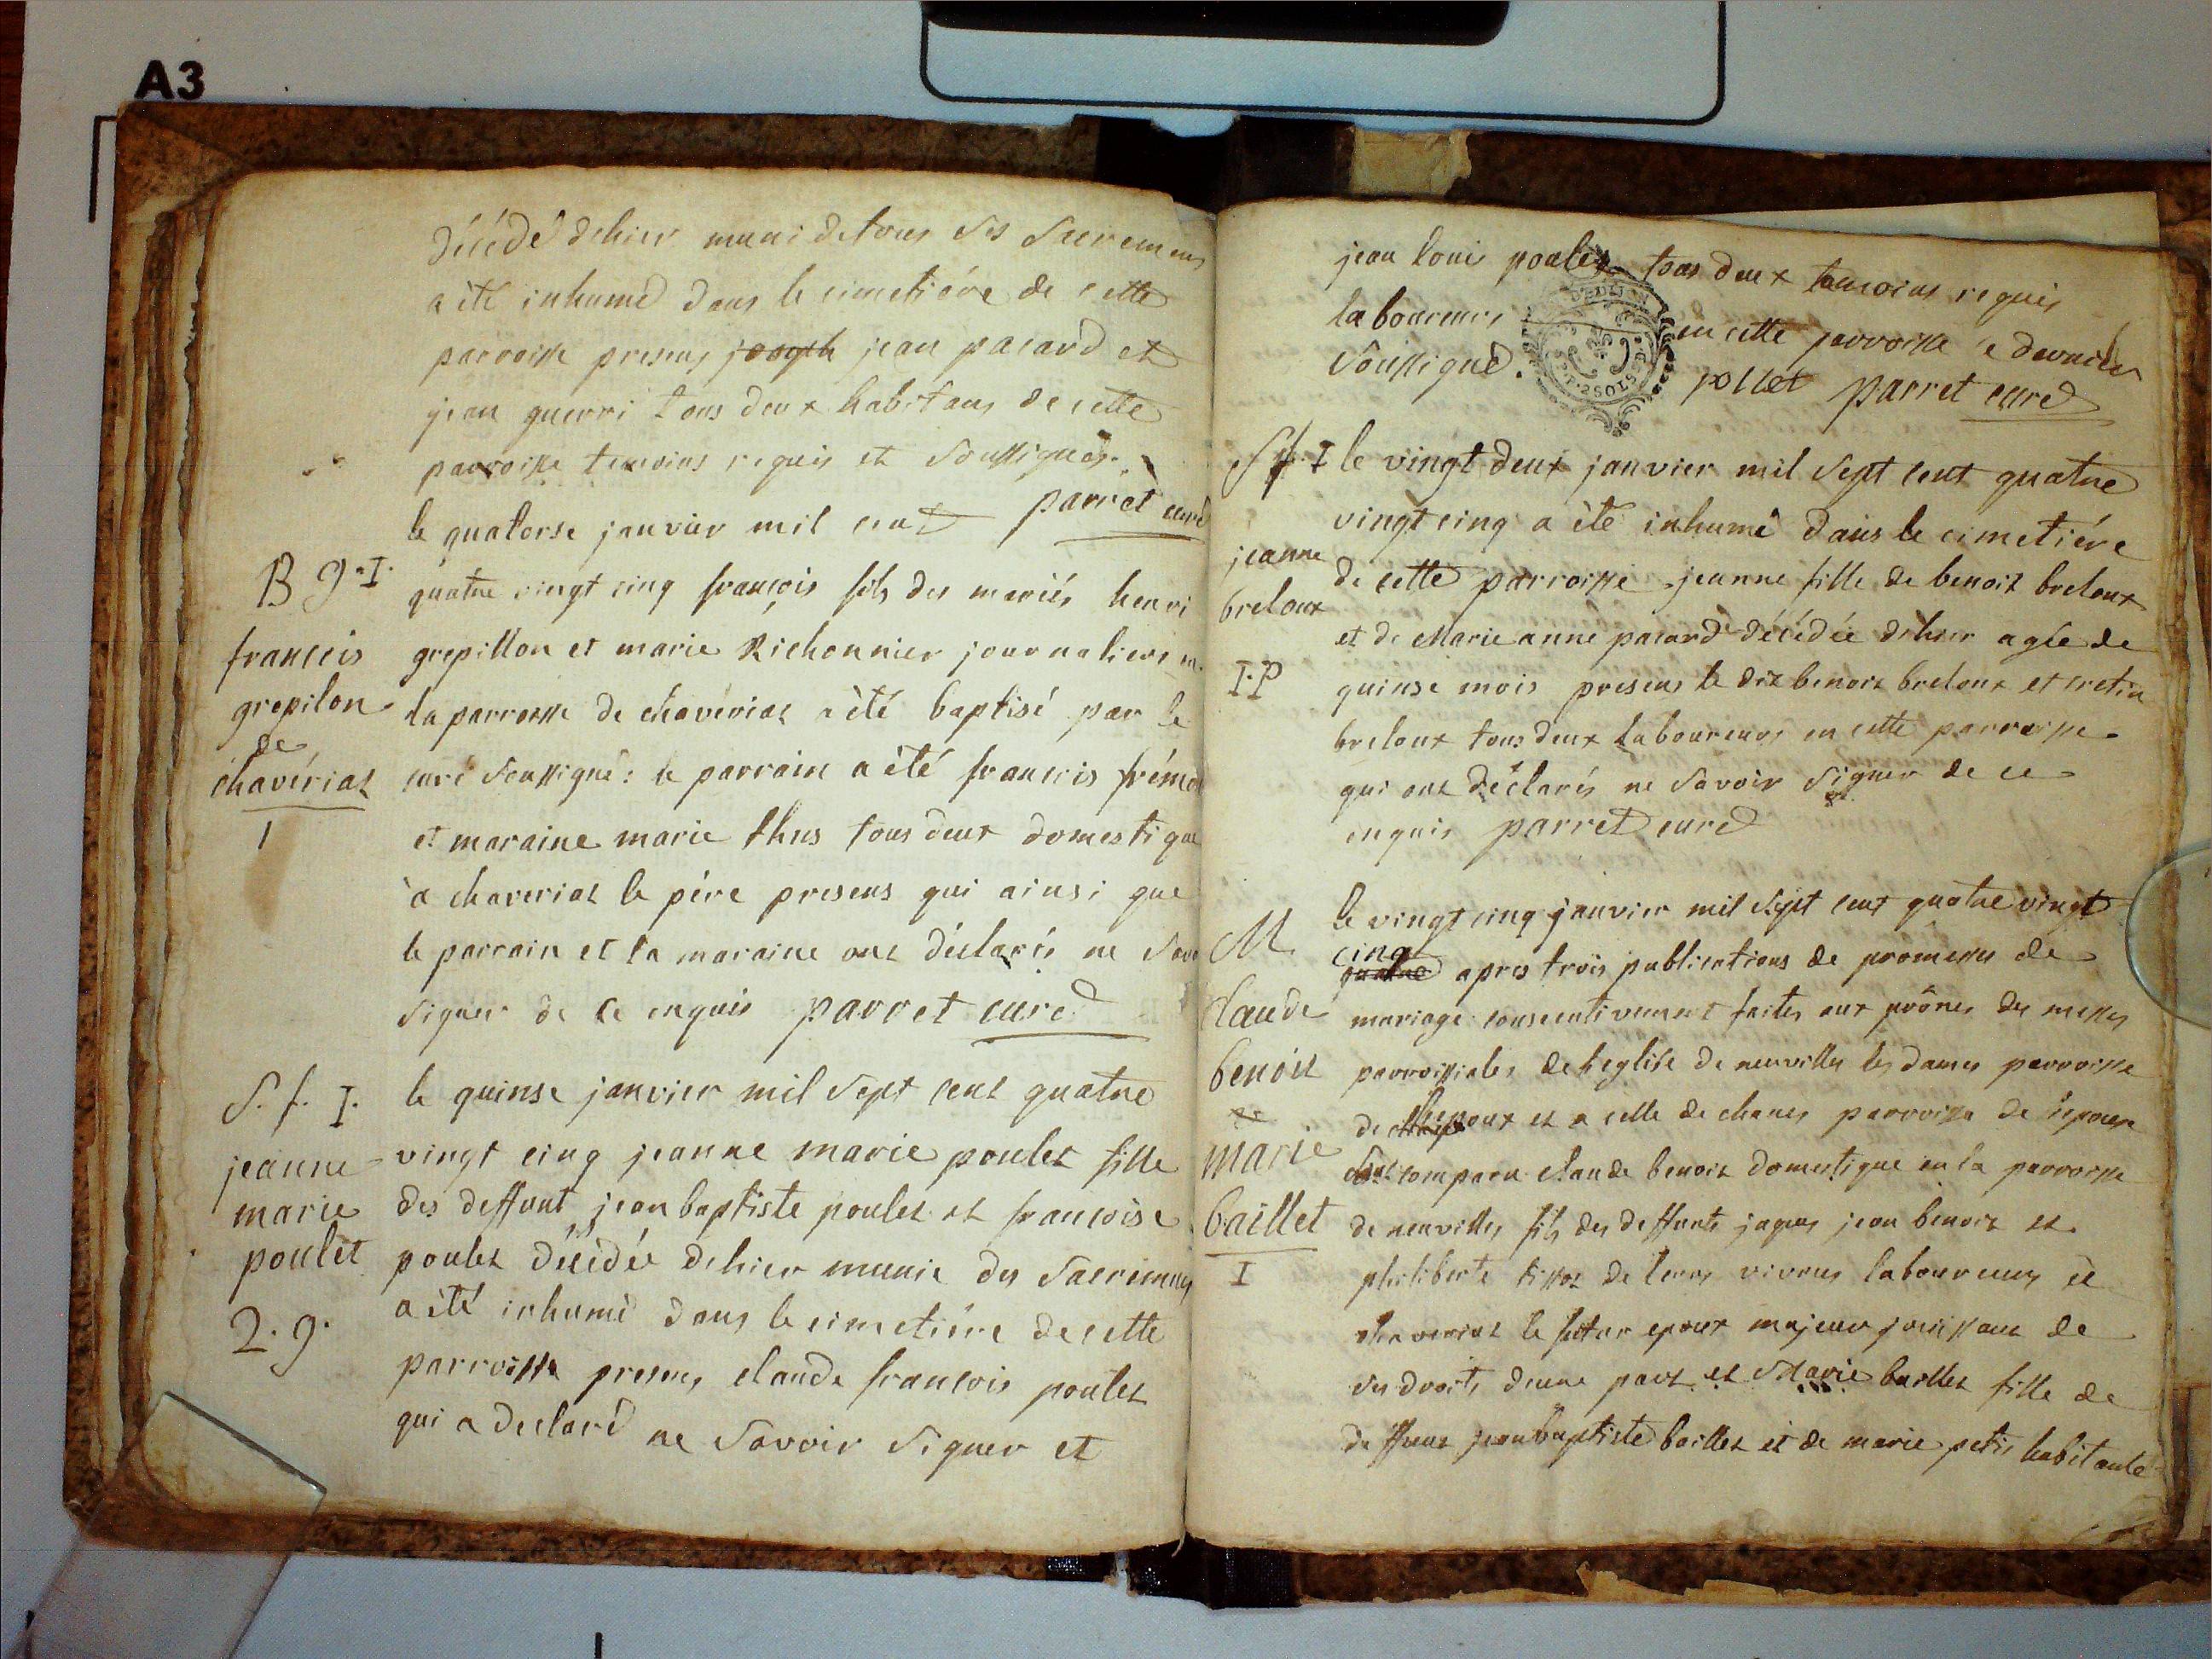 A3
décédé dehier muni de tous ses Sacremens
a èté inhumé dans le cimetiére de cette
parroisse presens joseph jean pacard et
jean guerri tous deux habitans de cette
parroisse temoins requis et Soussignés.
parret curé
le quatorse janvier mil cent
B g. I.
quatre vingt cinq françois fils des mariés henri
francois
grepillon et marie Richonnier journaliers
grepilon
la parroisse de chaveriat a été baptisé par le
de
chavériat
curé Soussigné: le parrain a été francois
1
et maraine marie thus tous deux domestique
à chaveriat le pére presens qui ainsi que
le parrain et la maraine ont déclarés ne
signer de ce enquis parret curé
S. f. I.
le quinse janvier mil Sept cent quatre
jeanne
vingt cinq jeanne marie poulet fille
marie
des deffunt jean baptiste poulet et francoise
poulet
poulet décédée dehier munie des Sacremens
2. g.
a été inhumé dans le cimetiére de cette
parroisse presens claude françois poulet
qui a declaré ne Savoir Signer et
jean louis poulet tous deux temoins requis
laboureurs en cette parroisse
Soussigné. pollet parret curé
2 SOLS
S f. I
le vingt deux janvier mil Sept cent quatre
vingt cinq a èté inhumé dans le cimetiére
jeanne
de cette parroisse jeanne fille de benoit breloux
breloux
et de Marie anne pacard décédée dehier agée de
I. P
quinse mois presens le dit benoit breloux et
breloux tous deux laboureurs en cette parroisse
qui ont déclarés ne Savoir Signer de ce
enquis parret curé
M
le vingt cinq janvier mil Sept cent quatre vingt
cinq
quatre apres trois publications de promesses de
claude
mariage consecutivement faites aux prônes des messes
benoit
parroissiales de l'eglise de neuvilles les dames parroisse
et
de l'epoux et a celle de chanes parroisse de l'epouse
marie
comparu claude benoit domestique en la parroisse
baillet
de neuvilles fils des deffunts jaques jean benoit et
I
philiberte tissot de leurs vivans laboureurs à
chaveriat le futur epoux majeur jouissant de
ses droits d'une part et Marie baillet fille de
deffunt jean baptiste baillet et de marie petit habitante